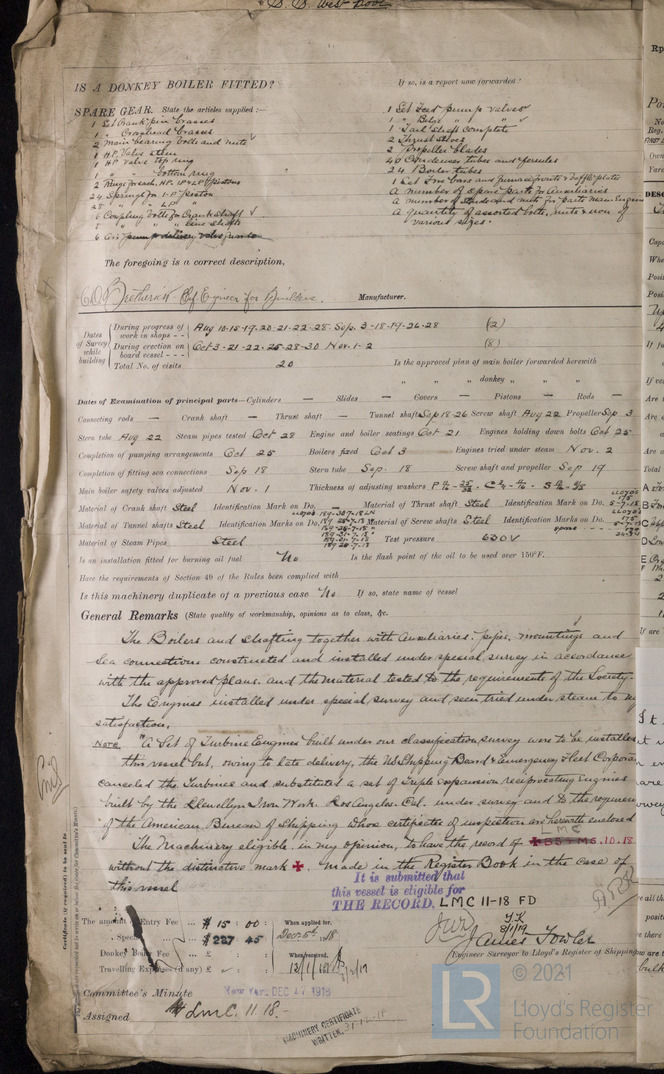 S.S. West
IS A DONKEY BOILER FITTED?
If so, is a report now forwarded?
SPARE GEAR. State the articles supplied :—
1 Set Crank pin brasses
1 " Crosshead brasses
2 Main bearing bolts and nuts
1 H.P. Valve stem
1 H.P. valve top ring
1 " " bottom ring
2 Rings for each, H.P. I.P & L.P Pistons
24 Springs for I.P Piston
28 " " L.P "
6 Coupling bolts for Crank Shaft
" " " Line Shafts
6 Air pump delivery valve
1 Set Feed pump valves
1 " Bilge " "
1 Tail shaft complete
2 Thrust shoes
2 Propeller blades
40 Condenser tubes and ferrules
24 Boiler tubes
1 Set Fire bars and furnace fronts & baffle plates
A number of spare parts for Auxiliaries
A number of studs and nuts for parts Main Engine
A quantity of assorted bolts, nuts & iron of
various sizes.
The foregoing is a correct description,
Chf Engineer for Builders. Manufacturer.
Dates of Survey while building
During progress of work in shops - - Aug 10-15-19-20-21-22-28- Sep. 3-18-19-26-28 (2)
During erection on board vessel - - - Oct 3-21-22-25-28-30 Nov. 1-2 (8)
Total No. of visits 20 Is the approved plan of main boiler forwarded herewith
" " " donkey " " "
Dates of Examination of principal parts—Cylinders — Slides — Covers — Pistons — Rods —
Connecting rods — Crank shaft — Thrust shaft — Tunnel shafts Sep 18-26 Screw shaft Aug 22 Propeller Sep 3
Stern tube Aug 22 Steam pipes tested Oct 28 Engine and boiler seatings Oct 21 Engines holding down bolts Oct 25
Completion of pumping arrangements Oct 25 Boilers fixed Oct 3 Engines tried under steam Nov. 2
Completion of fitting sea connections Sep 18 Stern tube Sep. 18 Screw shaft and propeller Sep 19
Main boiler safety valves adjusted Nov. 1 Thickness of adjusting washers
Material of Crank shaft Steel Identification Mark on Do. — Material of Thrust shaft Steel Identification Mark on Do.
Material of Tunnel shafts Steel Identification Marks on Do. Material of Screw shafts Steel Identification Marks on Do.
Material of Steam Pipes Steel Test pressure 630
Is an installation fitted for burning oil fuel No Is the flash point of the oil to be used over 150°F.
Have the requirements of Section 49 of the Rules been complied with
Is this machinery duplicate of a previous case No If so, state name of vessel
General Remarks (State quality of workmanship, opinions as to class, &c.
The Boilers and shafting together with Auxiliaries, pipe, mountings and
Sea connections constructed and installed under special survey in accordance
with the approved plans, and the material tested to the requirements of the Society.
The Engines installed under special survey and seen tried under steam to my
satisfaction.
Note "A Set of Turbine Engines built under our classification survey were to be installed
this vessel but, owing to late delivery, the U.S. Shipping Board & Emergency Fleet Corporation
canceled the Turbines and substituted a set of Triple expansion reciprocating Engines
built by the Llewellyn Iron Work. Los Angeles. Cal. under survey and to the requirem
of the American Bureau of Shipping whose certificates of inspection are herewith enclosed
The Machinery eligible, in my opinion, to have the record of LMC 10.18
without the distinctive mark ✠. made in the Register Book in the case of
this vessel
It is submitted that
this vessel is eligible for
THE RECORD. LMC 11-18 FD
The amount of Entry Fee ... $ 15 : 00 : When applied for,
Special ... $ 227 45 : Dec. 5th 18
Donkey Boiler Fee ... £ : : When received,
Travelling Expenses (if any) £ : :
James Fowler
Engineer Surveyor to Lloyd's Register of Shipping
Committee's Minute New York DEC 17 1918
Assigned LMC. 11.18.-
MACHINERY CERTIFICATE
WRITTEN.
Certificate (if required) to be sent to
© 2021
Lloyd's Register
Foundation
LR